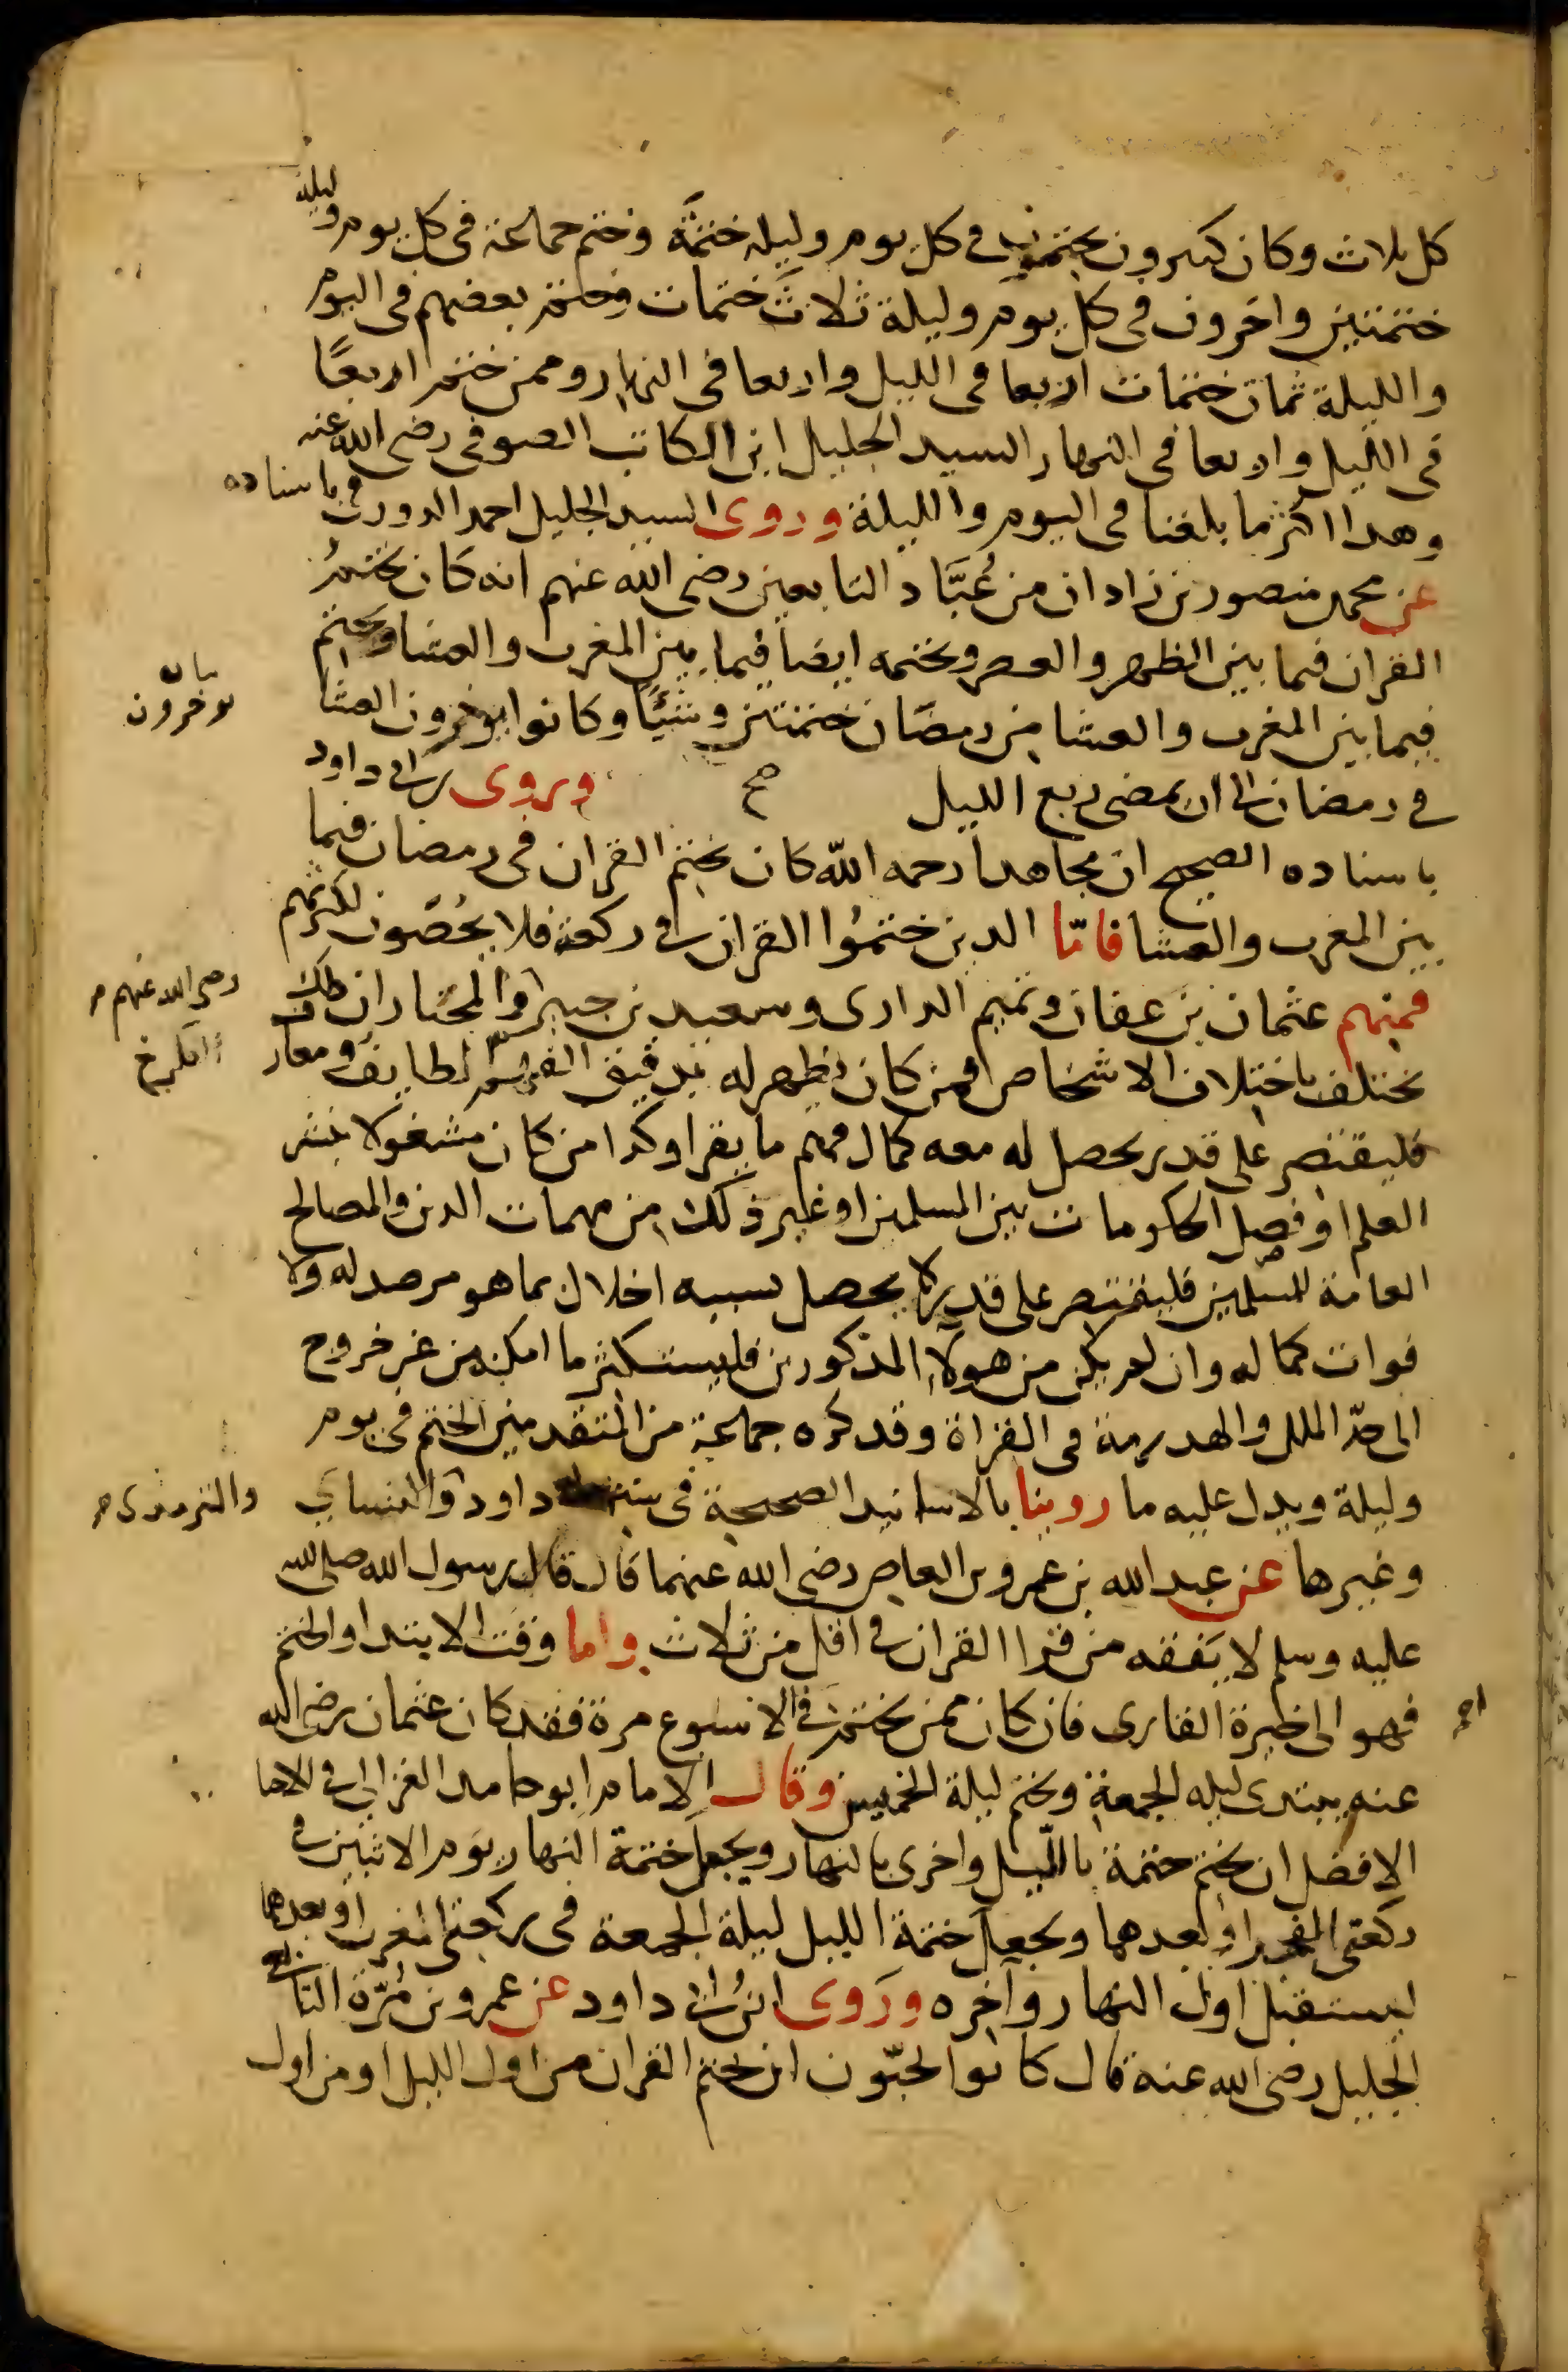 كل ثلاث وكان كثيرون يختمون في كل يوم وليله ختمَة وختم جماعة في كل يوم وليلة
ختمتين واخرون في كل يوم وليلة ثلاثَ ختمات وختم بعضهم في اليوم
والليلة ثمان ختمات اربعا في الليل واربعا في النهار وممن ختم اربعًا
في الليل واربعا في النهار السيد الجليل ابن الكاتب الصوفي رضي الله عنه
وهذا اكثر ما بلغنا في اليوم والليلة وروى السيد الجليل احمد الدورقي باسناده
عن محمد منصور بن زادان من عُبَّاد التابعين رضي الله عنهم انه كان يختمُ
القران فيما بين الظهر والعصر ويختمه ايضا فيما بين المغرب والعشا ويختمه
فيما بين المغرب والعشا من رمضَان ختمتين وشيًا وكانوا يوخرون العشا
بيان
يوخرون
في رمضان الى ان يمضي ربع الليل صح وروى ابي داود
باسناده الصحيح ان مجاهدا رحمه الله كان يختم القران في رمضان فيما
بين المغرب والعشا فامّا الذين ختموُا القران في ركعة فلا يُحصَون لكثرتهم
فمنهم عثمان بن عفان وتميم الداري وسعيد بن جبير والمختار ان ذلك
رضي الله عنهم
يختلف باختلاف الاشخاص فمن كان يظهر له بدقيق الفكر لطايف ومعارف
فليقتصر على قدر يحصل له معه كمال فهم ما يقرا وكذا من كان مشغولا بنشر
العلم او فصل الحكومات بين المسلمين او غير ذلك من مهمات الدين والمصالح
العامة للمسلمين فليقتصر على قدر لا يحصل بسببه اخلال بما هو مرصد له ولا
فوات كماله وان لم يكن من هولاءِ المذكورين فليستكثر ما امكنه من غير خروج
الى حدّ الملل والهدرمة في القراة وقد كره جماعة من المتقدمين الختم في يوم
وليلة ويدل عليه ما روينا بالاسانيد الصحيحة في سنن داود والنسايَ
والترمذي
وغيرها عن عبد الله بن عمرو بن العاص رضي الله عنهما قال قال رسول الله صلى الله
عليه وسلم لا يَفقه من قرا القران في اقل من ثلاث واما وقت الابتدا والختم
فهو الى خيرة القاري فان كان ممن يختم في الاسبوع مرة فقد كان عثمان رضي الله
عنه يبتدى ليله الجمعة ويختم ليلة الخميس وقال الامام ابو حامد الغزالي في الاحيا
الافضل ان يختم ختمة بالليل واخرى بالنهار ويجعل ختمة النهار يوم الاثنين في
ركعتي الفجر او بعدهما ويجعل ختمة الليل ليلة الجمعة في ركعتي المغرب او بعدهما
ليستقبل اول النهار وآخره وروى ابن ابي داود عن عمرو بن مُرَّة التابعي
الجليل رضي الله عنه قال كانوا يحبّون ان يختم القران من اول الليل او من اول